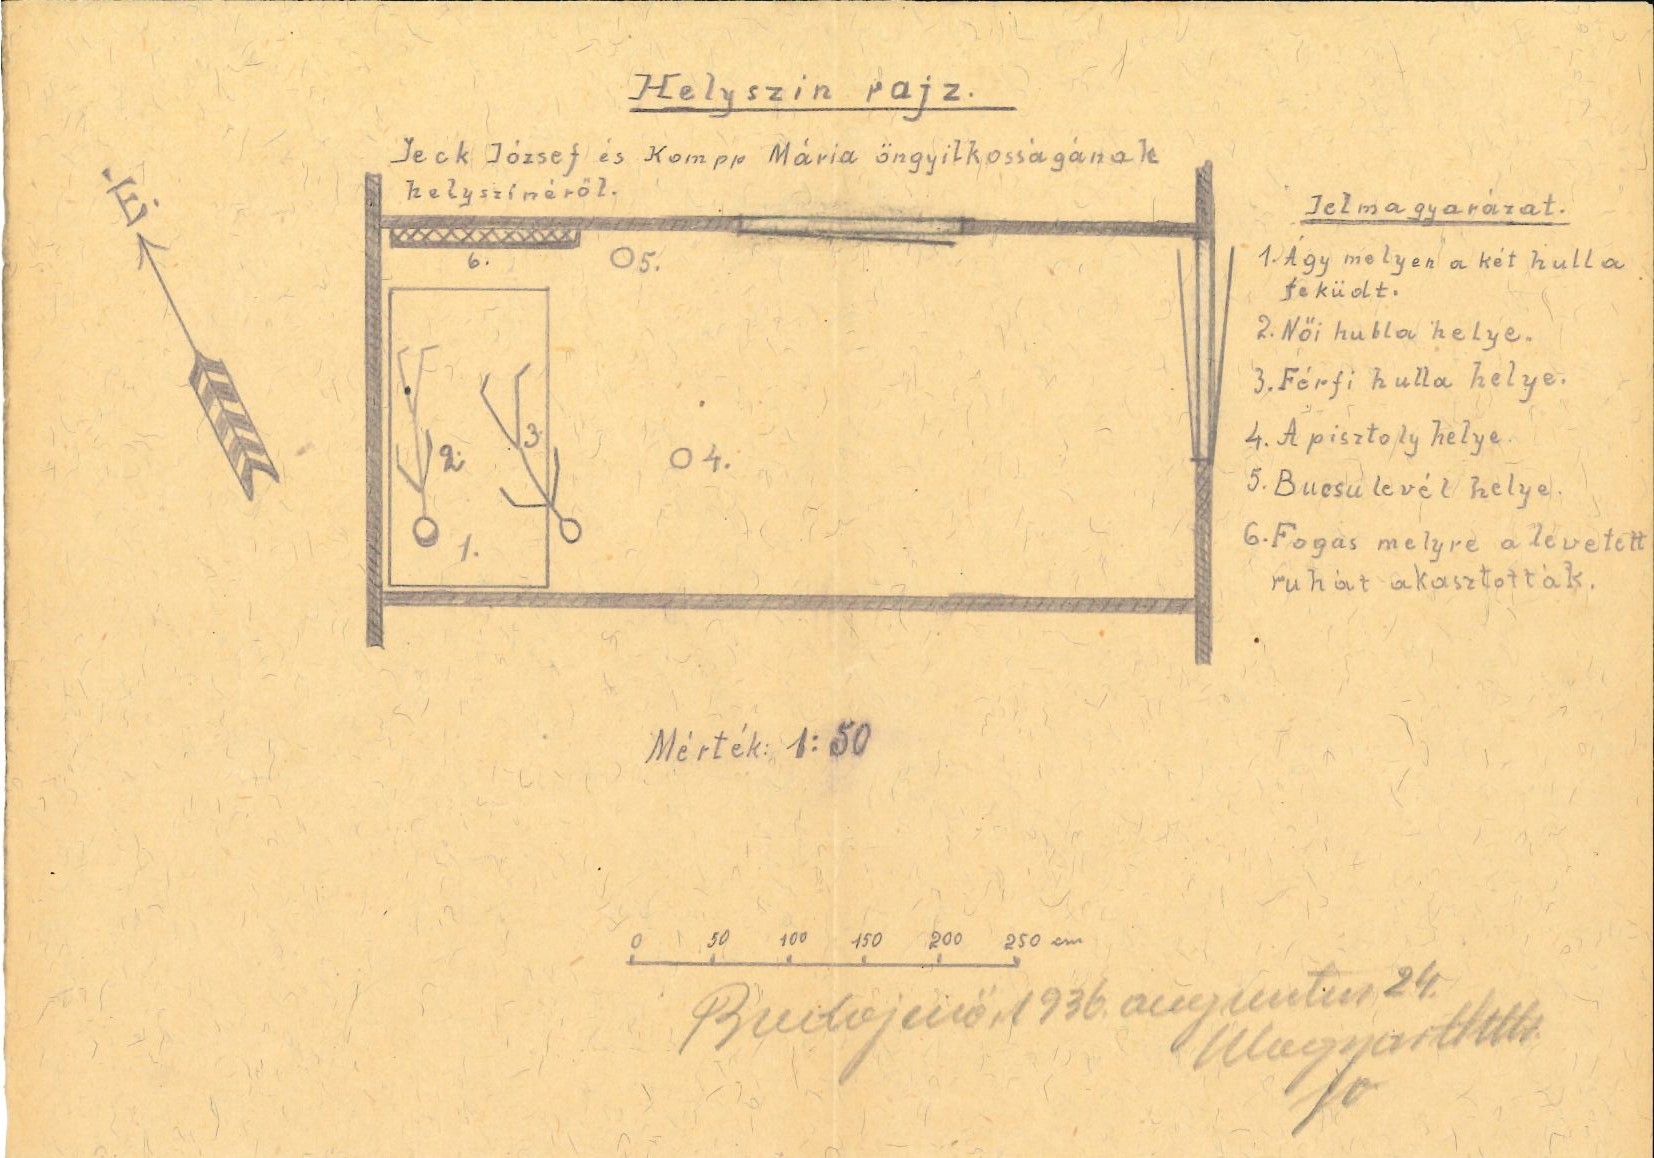 Helyszin rajz.
Jeck József és Kompp Mária öngyilkosságának
helyszínéről.
É
6.
5.
2.
3.
4.
1.
Jelmagyarázat.
1. Ágy melyen a két hulla
feküdt.
2. Női hulla helye.
3. Férfi hulla helye.
4. A pisztoly helye.
5. Bucsu levél helye.
6. Fogas melyre a levetett
ruhát akasztották.
Mérték: 1:50
0 50 100 150 200 250 cm
Budajenő, 1936. augusztus 24.
Magyar